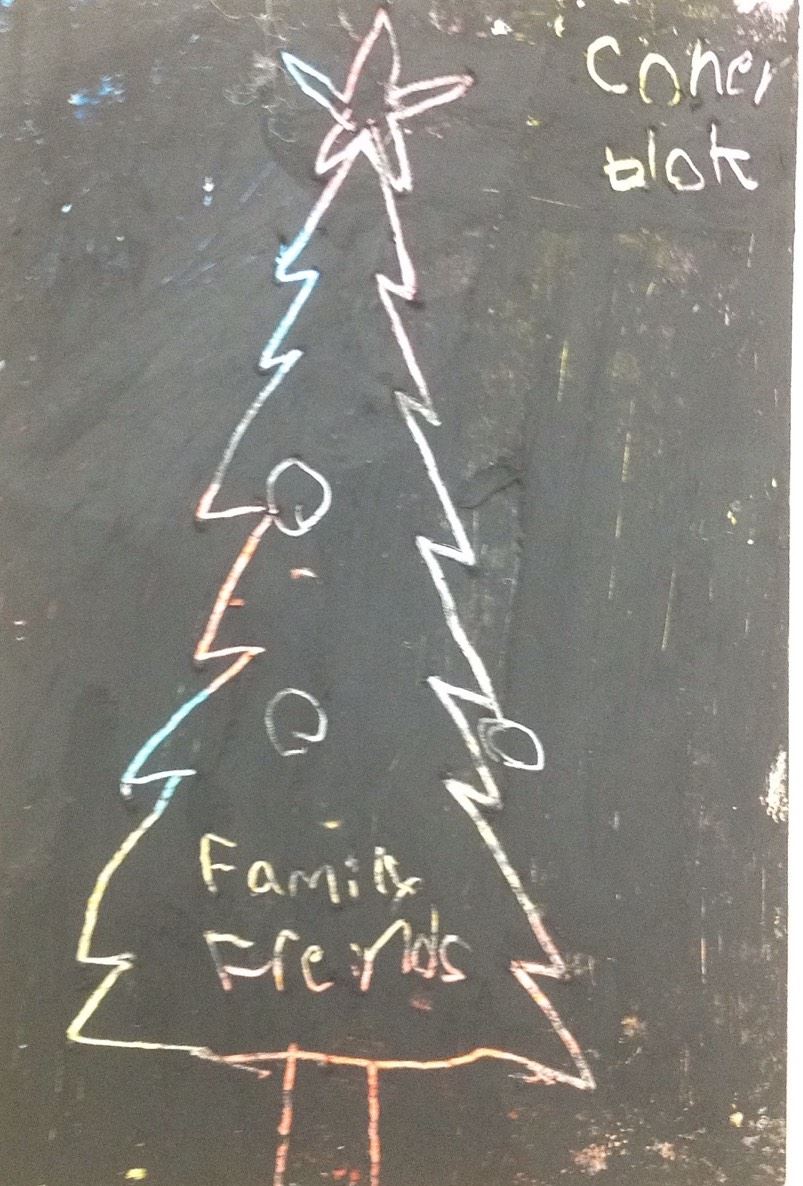 Coner
blok
Family
Freinds